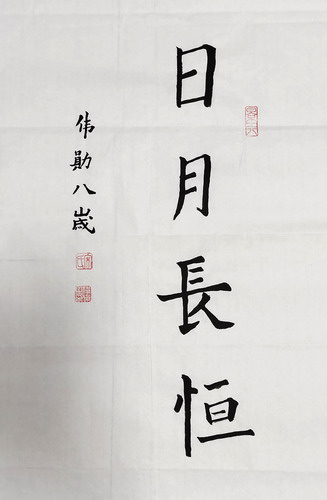 日月長恒
伟勛八歲